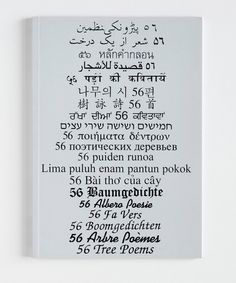 ۵۶ پیڑونکی نظمین
۵۶ شعر از یک درخت
๕๖
٥٦ قصيدة للأشجار
५६ की कवितायें
나무의 시 56편
樹 詠 詩 56 首
ਦੀਆਂ 56
חמישים ושישה שירי עצים
56 ποιήματα δέντρων
56 поэтических деревьев
56 puiden runoa
Lima puluh enam pantun pokok
56 Bài thơ của cây
56 Baumgedichte
56 Albero Poesie
56 Fa Vers
56 Boomgedichten
56 Arbre Poèmes
56 Tree Poems